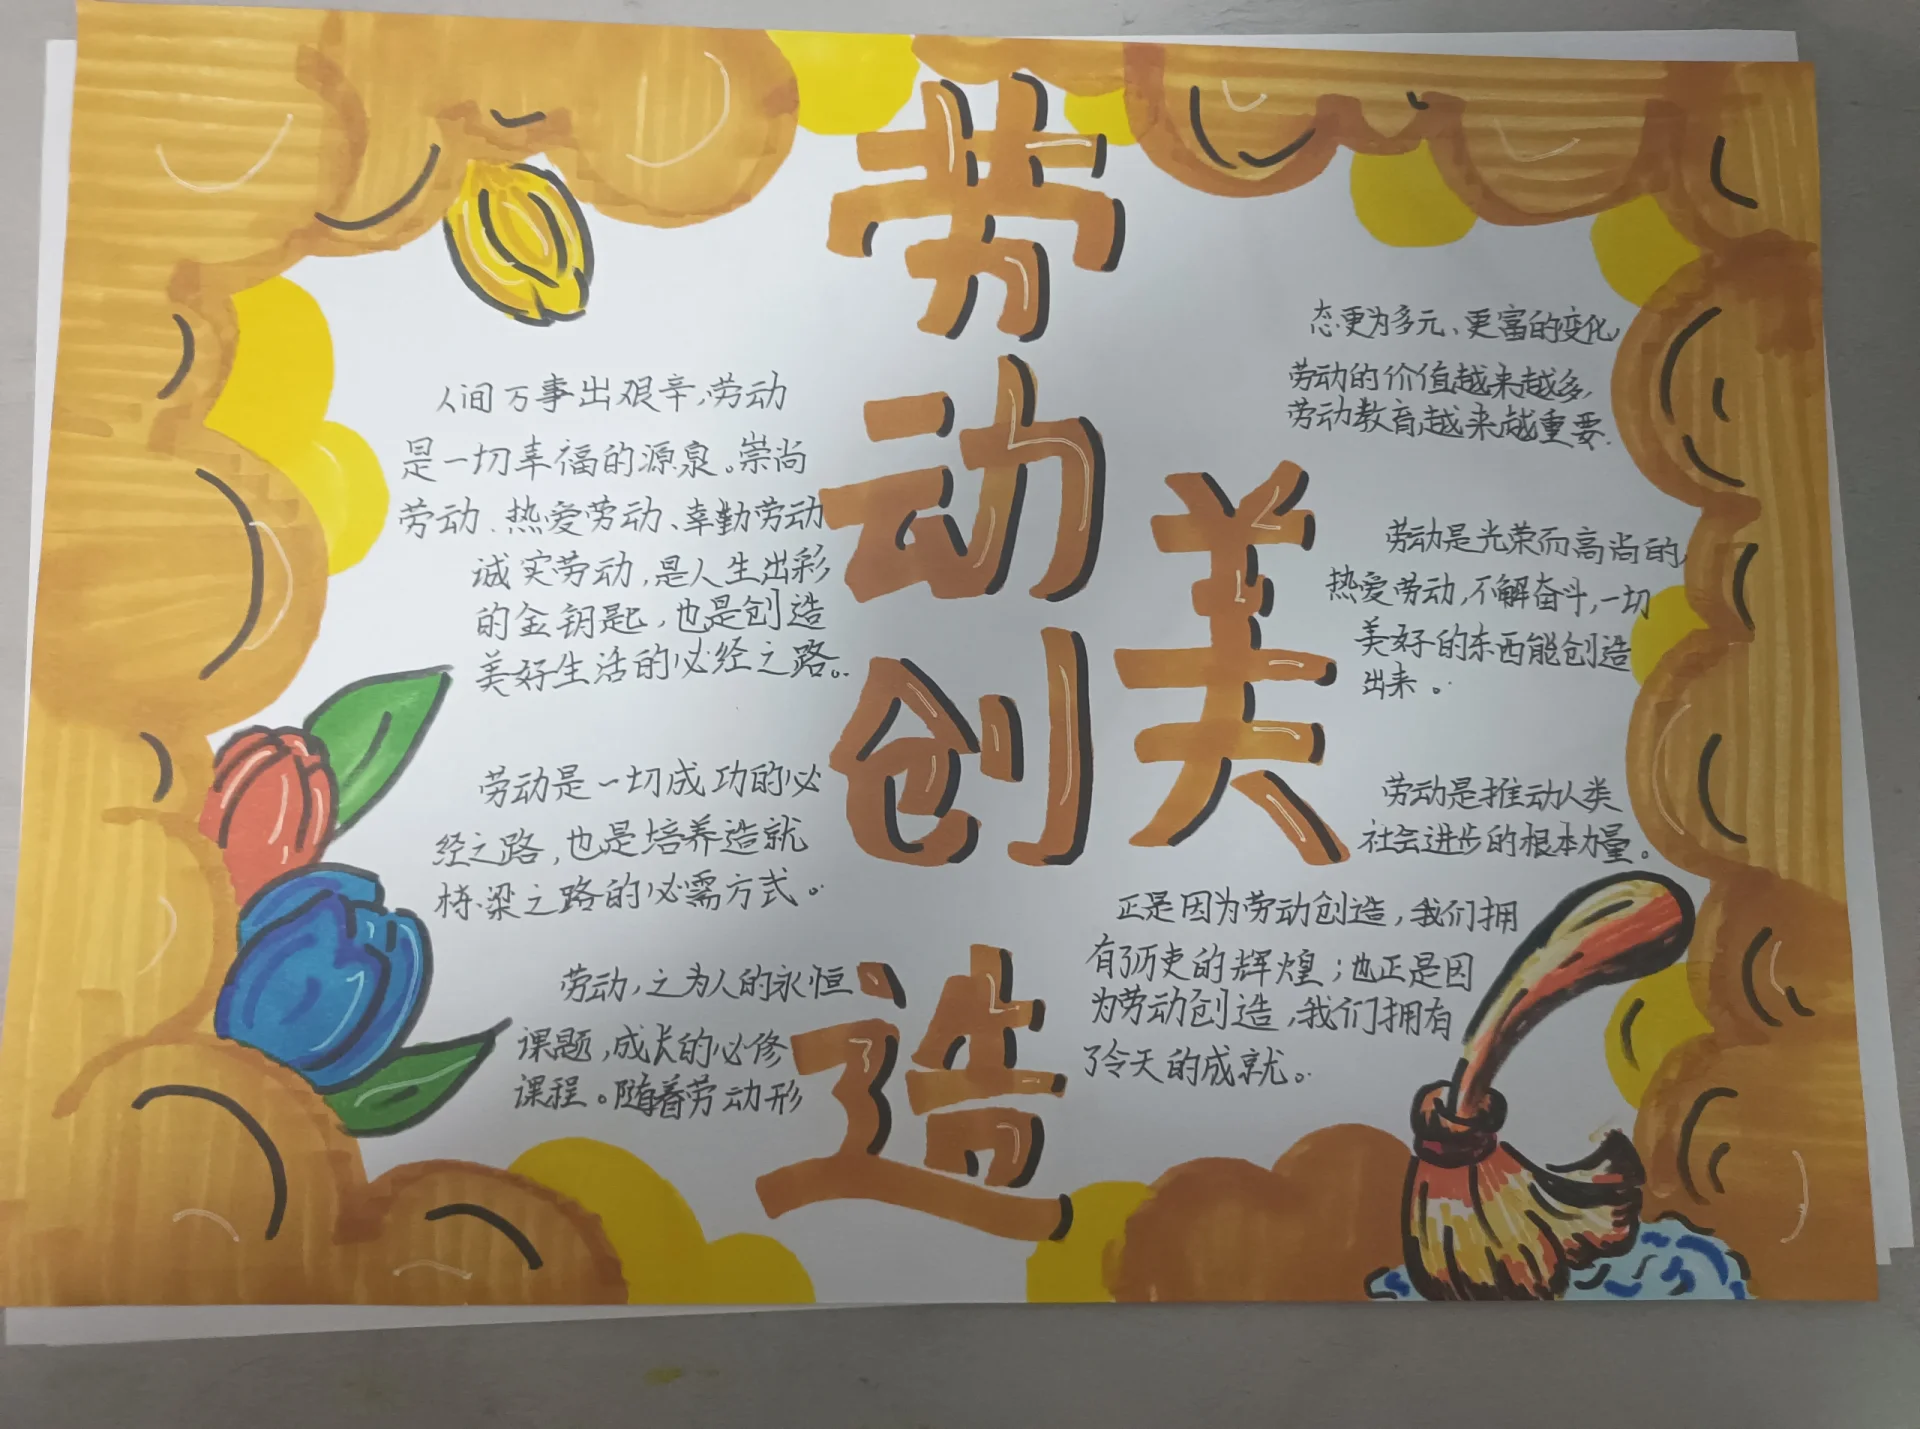 劳动创造
美
人间万事出艰辛,劳动
是一切幸福的源泉。崇尚
劳动、热爱劳动、辛勤劳动
诚实劳动,是人生出彩
的金钥匙,也是创造
美好生活的必经之路。
劳动是一切成功的必
经之路,也是培养造就
栋梁之路的必需方式。
劳动,之为人的永恒
课题,成长的必修
课程。随着劳动形
态更为多元、更富的变化
劳动的价值越来越多,
劳动教育越来越重要.
劳动是光荣而高尚的,
热爱劳动,不解奋斗,一切
美好的东西能创造
出来。
劳动是推动人类
社会进步的根本力量。
正是因为劳动创造,我们拥
有了历史的辉煌;也正是因
为劳动创造,我们拥有
了今天的成就。